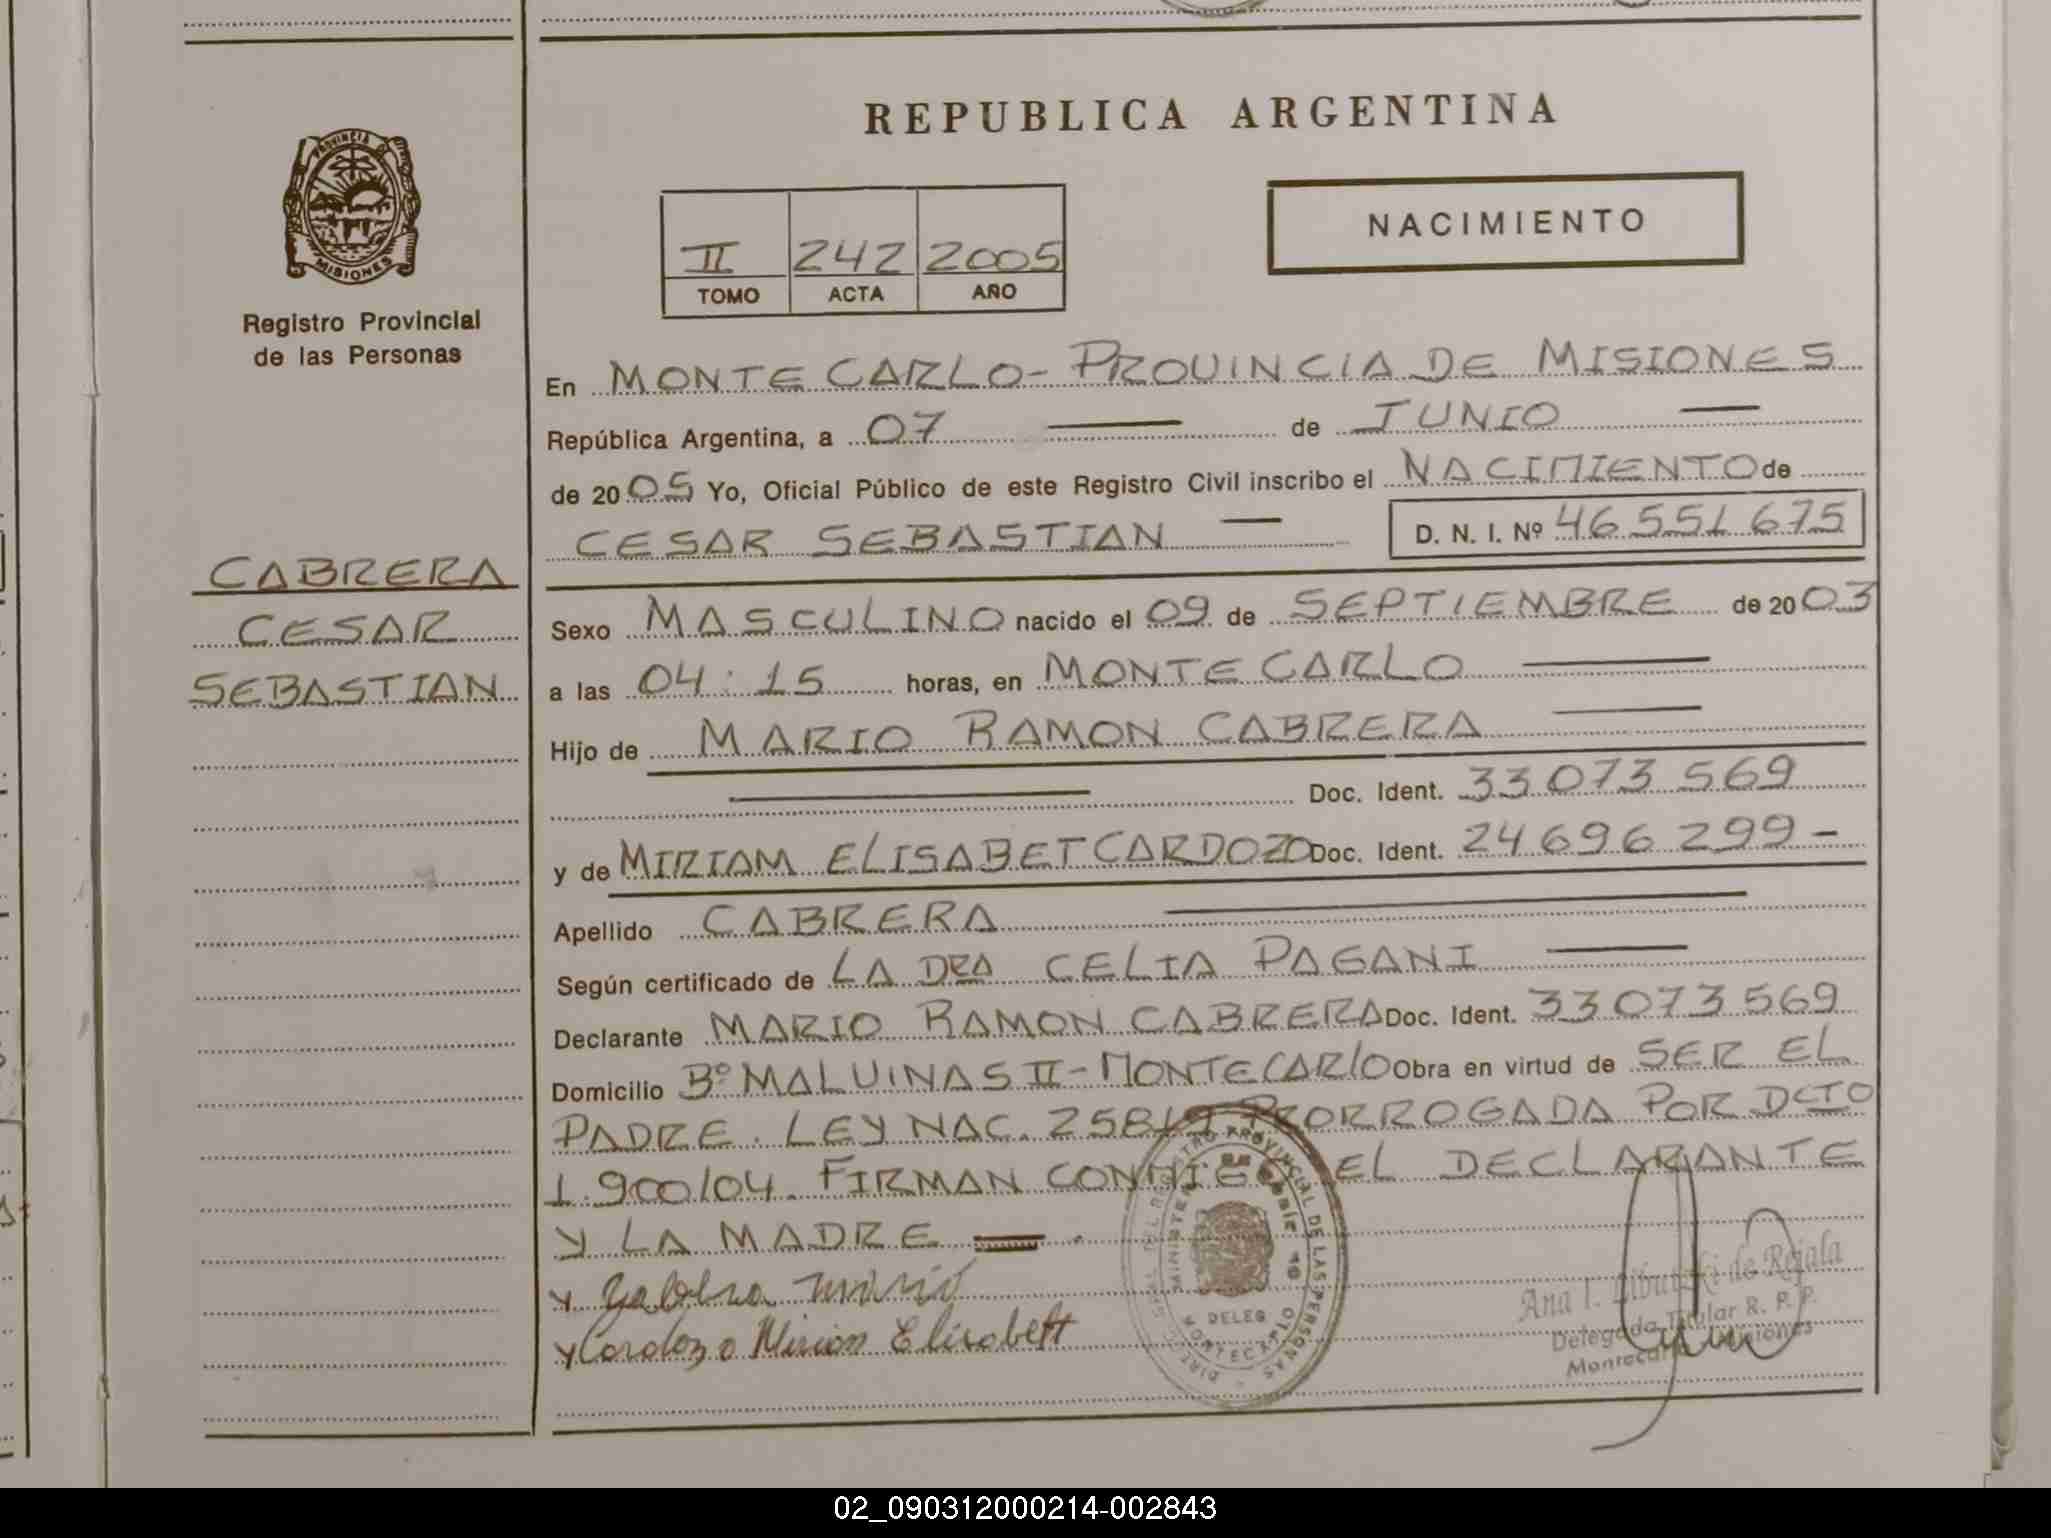 REPUBLICA ARGENTINA
PROVINCIA DE
MISIONES
Registro Provincial
de las Personas
NACIMIENTO
II 242 2005
TOMO ACTA AÑO
En MONTECARLO - PROVINCIA DE MISIONES
República Argentina, a 07 de JUNIO
de 2005 Yo, Oficial Público de este Registro Civil inscribo el NACIMIENTO de
CESAR SEBASTIAN D. N. I. Nº 46 551 675
CABRERA
CESAR
SEBASTIAN
Sexo MASCULINO nacido el 09 de SEPTIEMBRE de 2003
a las 04:15 horas, en MONTECARLO
Hijo de MARIO RAMON CABRERA
Doc. Ident. 33 073 569
y de MIRIAM ELISABET CARDOZO Doc. Ident. 24 696 299 -
Apellido CABRERA
Según certificado de LA DRA CELIA PAGANI
Declarante MARIO RAMON CABRERA Doc. Ident. 33 073 569
Domicilio Bº MALVINAS II - MONTECARLO Obra en virtud de SER EL
PADRE. LEY NAC. 25819 PRORROGADA POR DCTO
1.900/04. FIRMAN CONMIGO EL DECLARANTE
Y LA MADRE
Cardozo Miriam Elisabett
REGISTRO PROVINCIAL DE LAS PERSONAS
DELEG
MONTECARLO
Ana I. de Rejala
Delegada Titular R. P. P.
Montecarlo Misiones
02_090312000214-002843